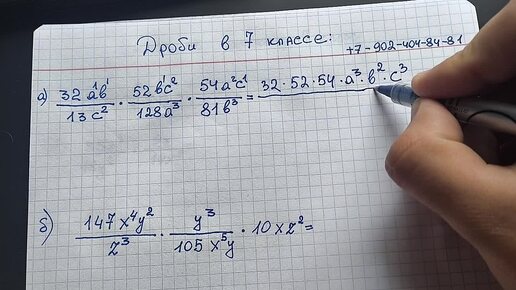 Дроби в 7 классе:
+7-902-404-84-81
а) 32a¹b¹/13c² · 52b¹c²/128a³ · 54a²c¹/81b³ = 32·52·54·a³·b²·c³
б) 147x⁴y²/z³ · y³/105x⁵y · 10xz² =